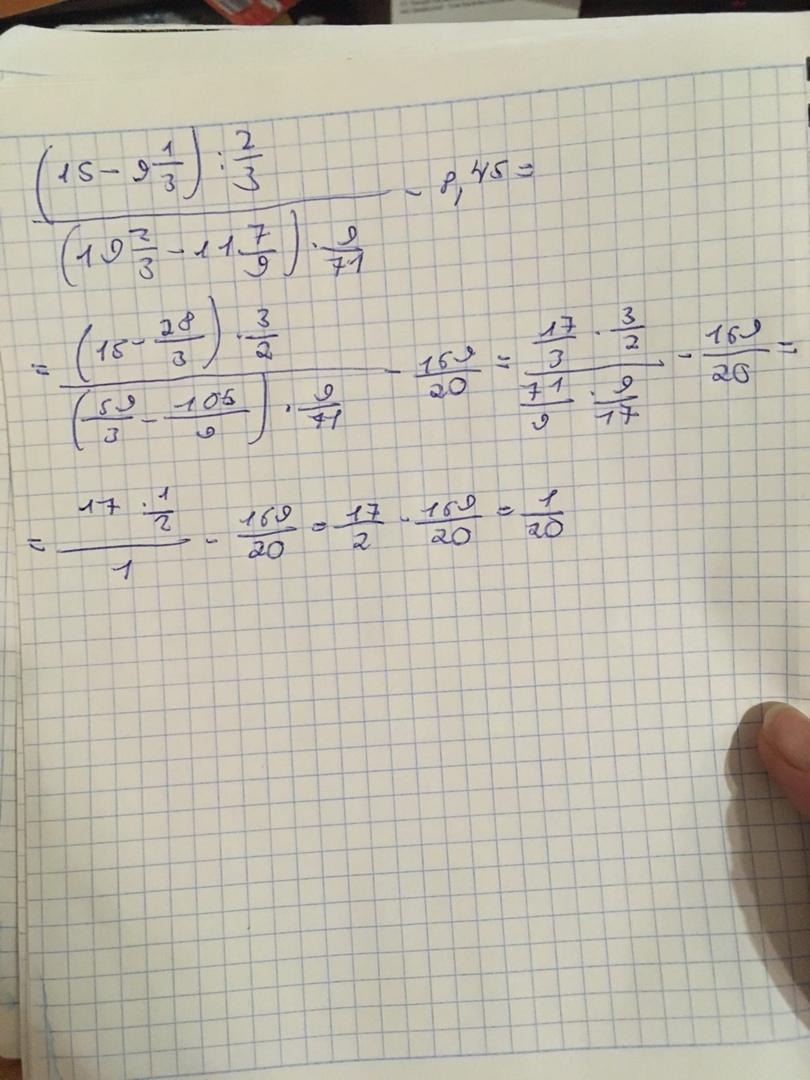 (15 - 9 1/3) : 2/3
――― - 8,45 =
(19 2/3 - 11 7/9) · 9/71
= ((15 - 28/3) · 3/2) / ((59/3 - 106/9) · 9/71) - 169/20 = (17/3 · 3/2) / (71/9 · 9/17) - 169/20 =
= (17 · 1/2) / 1 - 169/20 = 17/2 - 169/20 = 1/20